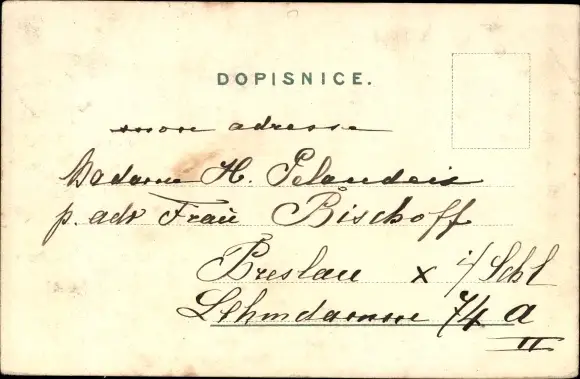 DOPISNICE.
adresse
Madame H.
p. adr Frau Bischoff
Breslau X i/Schl
Lehmdamm 74 a
II